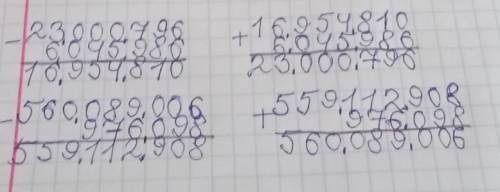 - 23.000.796
6.045.986
16.954.810
+ 16.954.810
6.045.986
23.000.796
- 560.089.006
976.098
559.112.908
+ 559.112.908
976.098
560.089.006